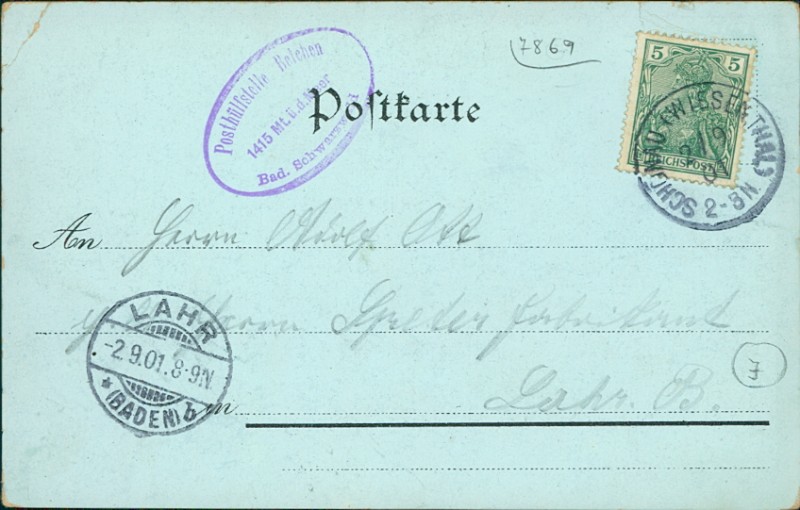 7869
Posthülfstelle Belchen
1415 Mt. ü. d. Meer
Bad. Schwarzwald
Postkarte
5 5
REICHSPOST
SCHÖNAU (WIESENTHAL)
2-3N.
An Herrn Adolf Ott
Herrn Speter Fabrikant
in Lahr. B.
LAHR
-2.9.01.8-9N.
* (BADEN) b